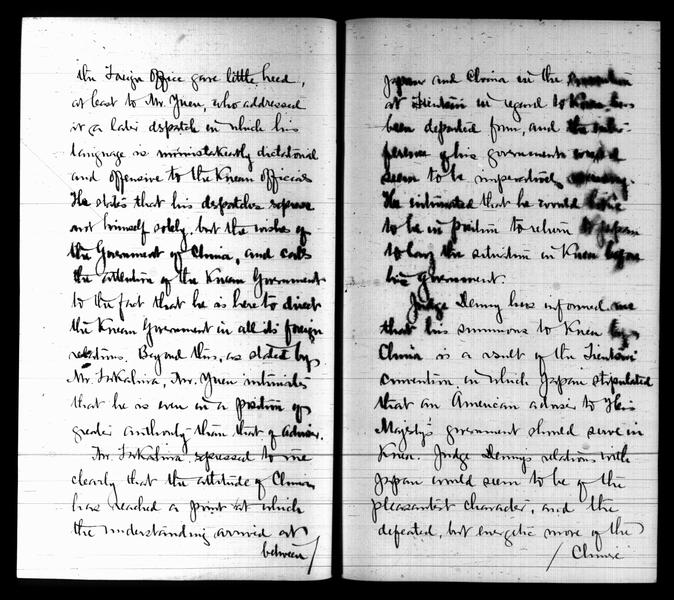 the Foreign Office gave little heed,
at least to Mr. Yuen, who addressed
it a later dispatch in which his
language is unmistakently dictatorial
and offensive to the Korean officials
He states that his dispatches represent
not himself solely, but the wishes of
the Government of China, and calls
the attention of the Korean Government
to the fact that he is here to direct
the Korean Government in all its foreign
relations. Beyond this, as stated by
Mr. Takahira, Mr. Yuen intimates
that he is even in a position of
greater authority than that of adviser.
Mr. Takahira expressed to me
clearly that the attitude of China
has reached a point at which
the understanding arrived at
between/
Japan and China in the convention
at Tientsin in regard to Korea has
been departed from, and the
of his government would
seem to be imperatively necessary.
He intimated that he would like
to be in position to return to Japan
to lay the situation in Korea before
his government.
Judge Denny has informed me
that his summons to Korea by
China is a result of the Tientsin
convention in which Japan stipulated
that an American adviser to His
Majesty's government should serve in
Korea. Judge Denny's relations with
Japan would seem to be of the
pleasantest character, and the
defeated, but energetic move of the
/Chinese